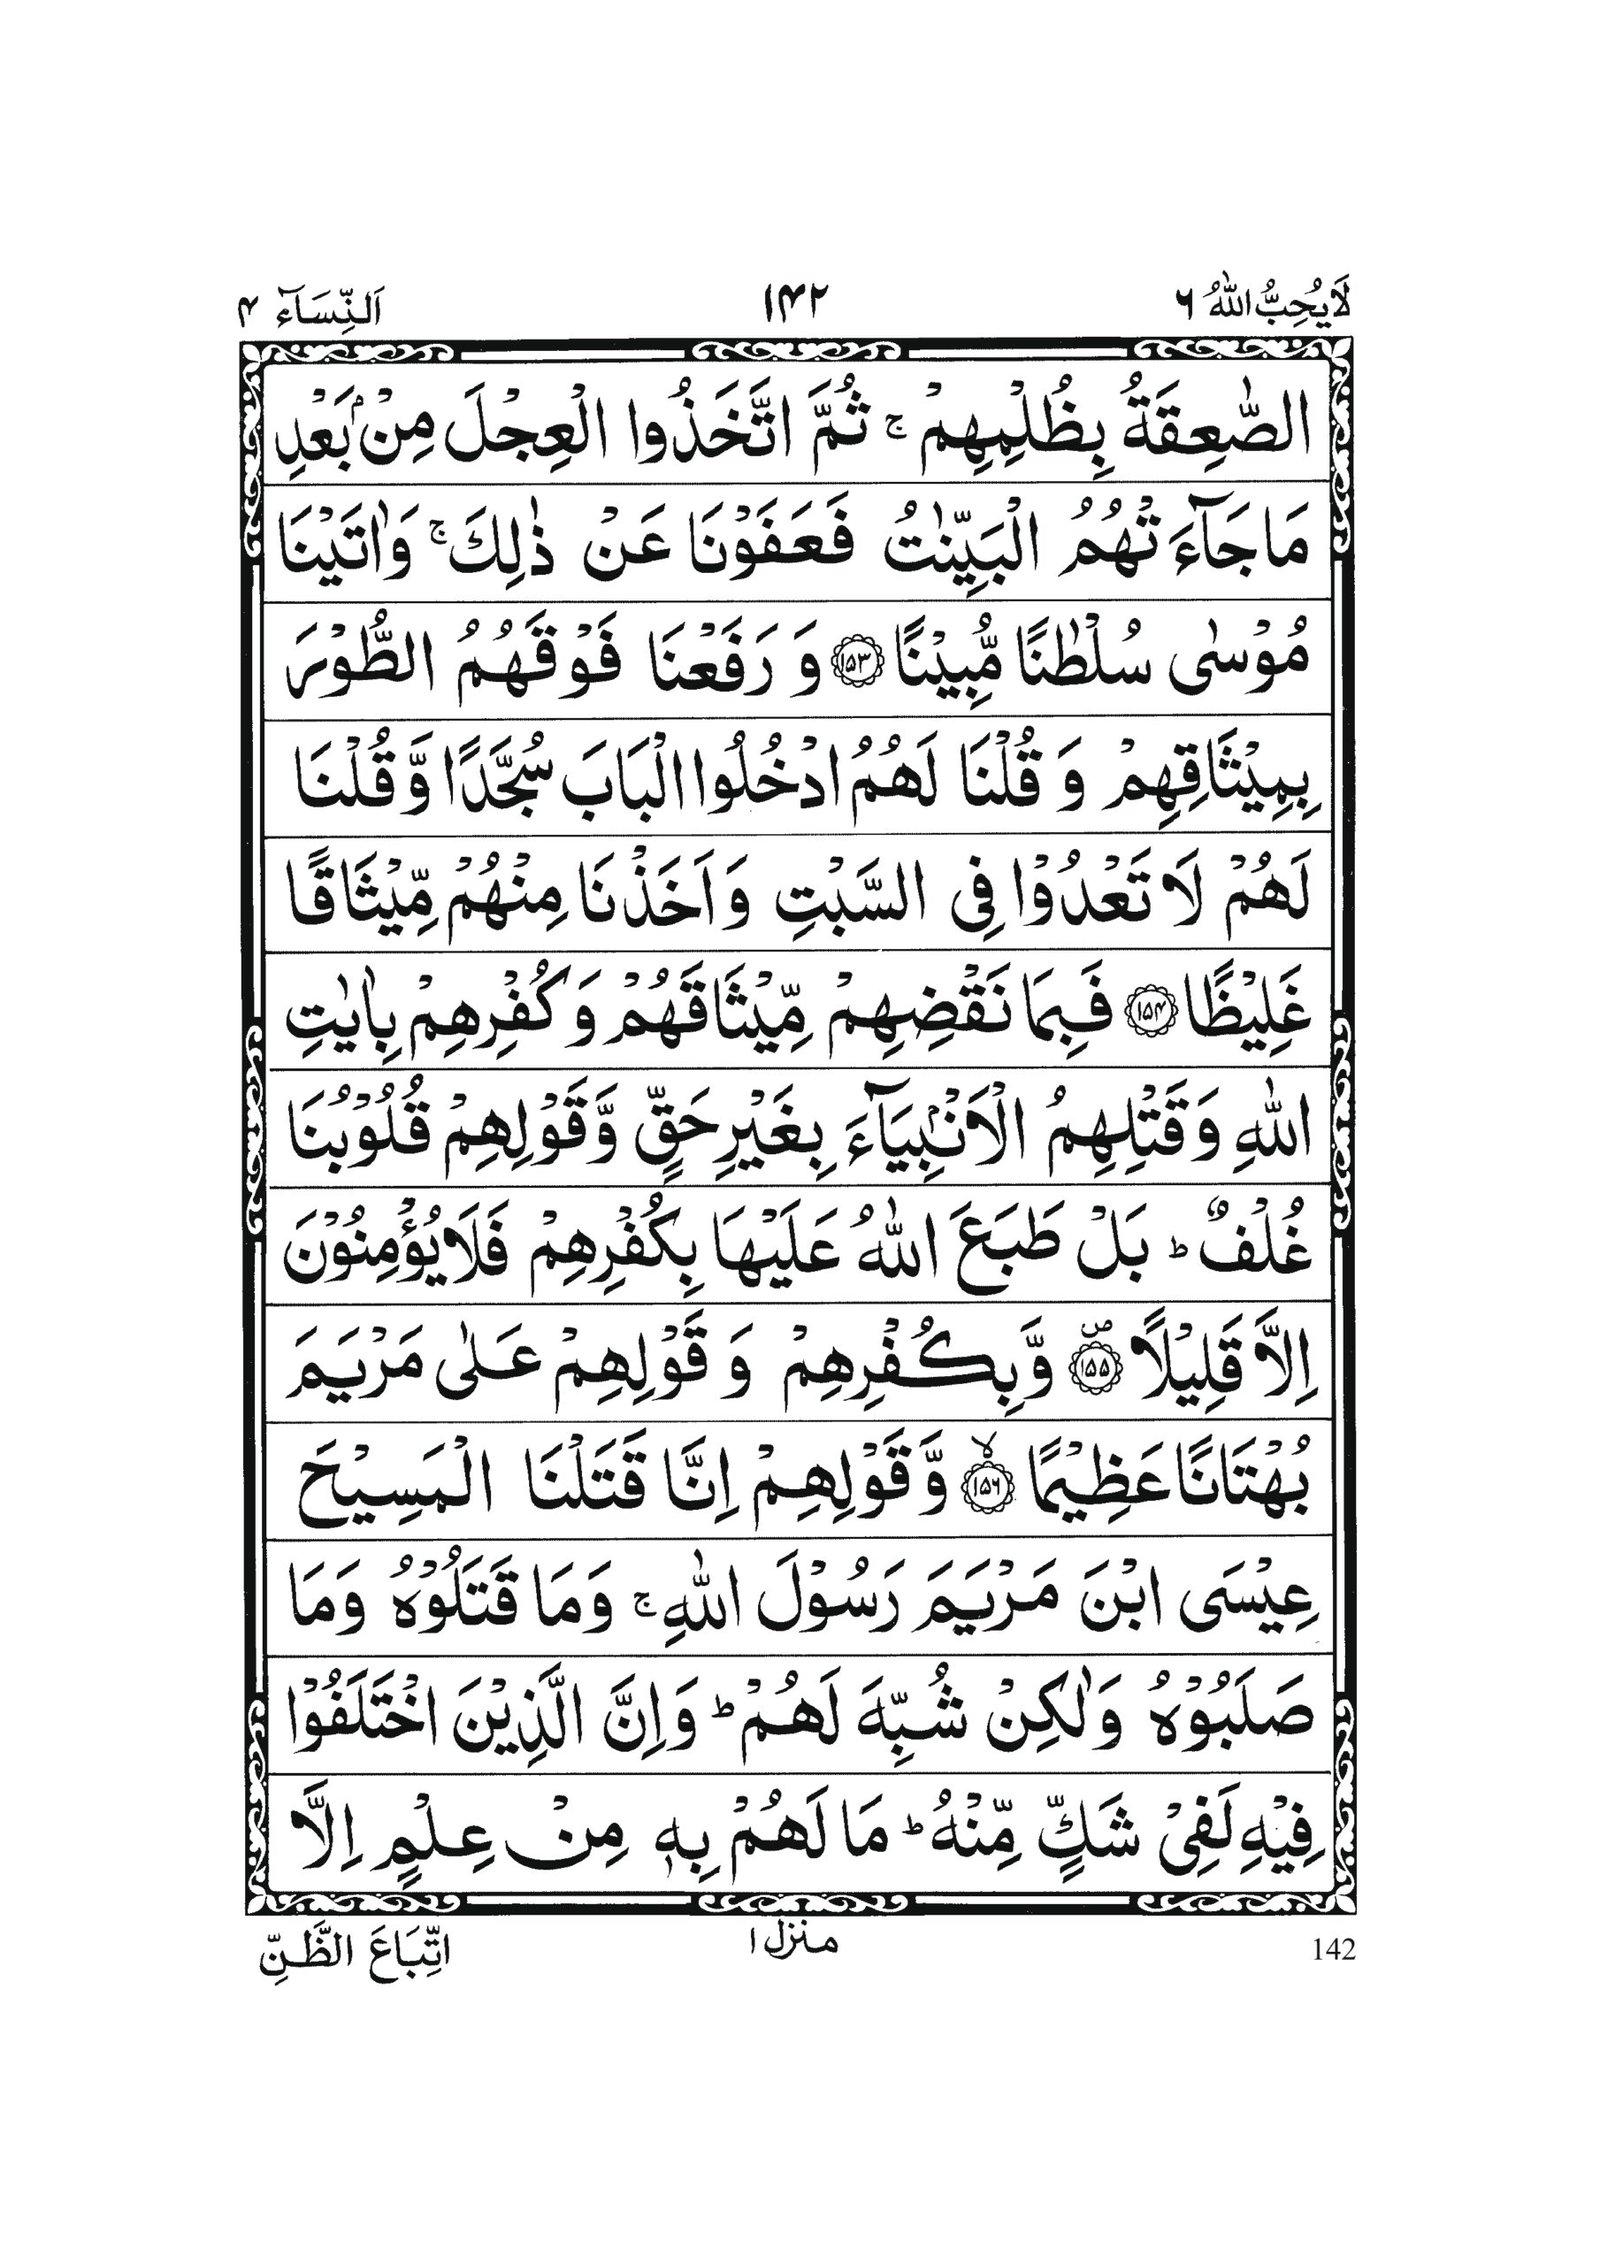 لَا يُحِبُّ اللّٰهُ ٦ ١٤٢ اَلنِّسَآء ٤
الصّٰعِقَةُ بِظُلْمِهِمْ ۚ ثُمَّ اتَّخَذُوا الْعِجْلَ مِنْۢ بَعْدِ
مَا جَآءَتْهُمُ الْبَيِّنٰتُ فَعَفَوْنَا عَنْ ذٰلِكَ ۚ وَاٰتَيْنَا
مُوْسٰى سُلْطٰنًا مُّبِيْنًا ﴿۱۵۳﴾ وَ رَفَعْنَا فَوْقَهُمُ الطُّوْرَ
بِمِيْثَاقِهِمْ وَ قُلْنَا لَهُمُ ادْخُلُوا الْبَابَ سُجَّدًا وَّ قُلْنَا
لَهُمْ لَا تَعْدُوْا فِى السَّبْتِ وَ اَخَذْنَا مِنْهُمْ مِّيْثَاقًا
غَلِيْظًا ﴿۱۵۴﴾ فَبِمَا نَقْضِهِمْ مِّيْثَاقَهُمْ وَ كُفْرِهِمْ بِاٰيٰتِ
اللّٰهِ وَ قَتْلِهِمُ الْاَنْۢبِيَآءَ بِغَيْرِ حَقٍّ وَّ قَوْلِهِمْ قُلُوْبُنَا
غُلْفٌ ؕ بَلْ طَبَعَ اللّٰهُ عَلَيْهَا بِكُفْرِهِمْ فَلَا يُؤْمِنُوْنَ
اِلَّا قَلِيْلًا ﴿۱۵۵﴾ۖ وَّ بِكُفْرِهِمْ وَ قَوْلِهِمْ عَلٰى مَرْيَمَ
بُهْتَانًا عَظِيْمًا ﴿۱۵۶﴾ۙ وَّ قَوْلِهِمْ اِنَّا قَتَلْنَا الْمَسِيْحَ
عِيْسَى ابْنَ مَرْيَمَ رَسُوْلَ اللّٰهِ ۚ وَمَا قَتَلُوْهُ وَمَا
صَلَبُوْهُ وَلٰكِنْ شُبِّهَ لَهُمْ ؕ وَاِنَّ الَّذِيْنَ اخْتَلَفُوْا
فِيْهِ لَفِىْ شَكٍّ مِّنْهُ ؕ مَا لَهُمْ بِهٖ مِنْ عِلْمٍ اِلَّا
142 منزل ١ اتِّبَاعَ الظَّنِّ